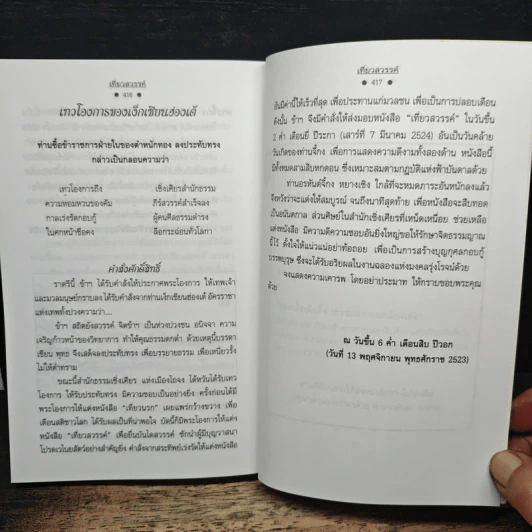 เที่ยวสวรรค์
● 416 ●
เทวโองการของเง็กเซียนฮ่องเต้
ท่านซื้อข้าราชการฝ่ายในของตำหนักทอง ลงประทับทรง
กล่าวเป็นกลอนความว่า
เทวโองการถึง เซิ่งเศียรสำนักธรรม
ความหอมหวนของคัม ภีร์สวรรค์สำเร็จลง
กาลเร่งรัดกอบกู้ ผู้คนศีลธรรมดำรง
ในศกหน้าซือคง ลือกระฉ่อนทั่วโลกา
คำสั่งศักดิ์สิทธิ์
ราตรีนี้ ข้าฯ ได้รับคำสั่งให้ประกาศพระโองการ ให้เทพเจ้า
และมวลมนุษย์กราบลง ได้รับคำสั่งจากท่านเง็กเซียนฮ่องเต้ อัครราชา
แห่งเทพทั้งปวงความว่า....
ข้าฯ สถิตยังสวรรค์ จิตข้าฯ เป็นห่วงปวงชน อนิจจา ความ
เจริญก้าวหน้าของวิทยาการ ทำให้คุณธรรมตกต่ำ ด้วยเหตุนี้บรรดา
เซียน พุทธ จึงเสด็จลงประทับทรง เพื่อบรรยายธรรม เพื่อเหนี่ยวรั้ง
ไม่ให้ต่ำทราม
ขณะนี้สำนักธรรมเซิ่งเศียร แห่งเมืองไถจง ได้หวันได้รับเทว
โองการ ให้รับประทับทรง มีความชอบเป็นอย่างยิ่ง ครั้งก่อนได้มี
พระโองการให้แต่งหนังสือ "เที่ยวนรก" เผยแพร่กว้างขวาง เพื่อ
เตือนสติชาวโลก ได้รับผลเป็นที่น่าพอใจ บัดนี้ก็มีพระโองการให้แต่ง
หนังสือ "เที่ยวสวรรค์" เพื่อยื่นบันไดสวรรค์ ชักนำผู้มีบุญวาสนา
โปรดเวไนยสัตว์อย่างสำคัญยิ่ง คำสั่งจากสระทิพย์เร่งรัดให้แต่งหนังสือ
เที่ยวสวรรค์
● 417 ●
อันมีค่านี้ให้เร็วที่สุด เพื่อประทานแก่มวลชน เพื่อเป็นการปลอบเตือน
ดังนั้น ข้าฯ จึงมีคำสั่งให้ส่งมอบหนังสือ "เที่ยวสวรรค์" ในวันขึ้น
2 ค่ำ เดือนยี่ ปีระกา (เสาร์ที่ 7 มีนาคม 2524) อันเป็นวันคล้าย
วันเกิดของท่านจี้กง เพื่อการแสดงความดีงามทั้งสองด้าน หนังสือนี้
มีทั้งหมดสามสิบหกตอน ซึ่งเหมาะสมตามกฎบัติแห่งฟ้าบันดาลด้วย
ท่านอรหันต์จี้กง หยางเซิง ใกล้ที่จะหมดภาระอันหนักลงแล้ว
จึงหวังว่าจะแต่งให้สมบูรณ์ จนถึงนาทีสุดท้าย เพื่อหนังสือจะสืบทอด
เป็นอนันตกาล ส่วนศิษย์ในสำนักเซิ่งเศียรที่เหน็ดเหนื่อย ช่วยเหลือ
แต่งหนังสือ มีความดีความชอบอันยิ่งใหญ่ขอให้รักษาจิตธรรมญาณ
นี้ไว้ ตั้งใจให้แน่วแน่อย่าท้อถอย เพื่อเป็นการสร้างบุญกุศลกอบกู้
บรรพบุรุษ ซึ่งจะได้รับอริยผลในงานฉลองแห่งมงคลรุ่งโรจน์ด้วย
จงแสดงความเคารพ โดยอย่าประมาท ให้กราบขอบพระคุณ
ด้วย
ณ วันขึ้น 6 ค่ำ เดือนสิบ ปีวอก
(วันที่ 13 พฤศจิกายน พุทธศักราช 2523)